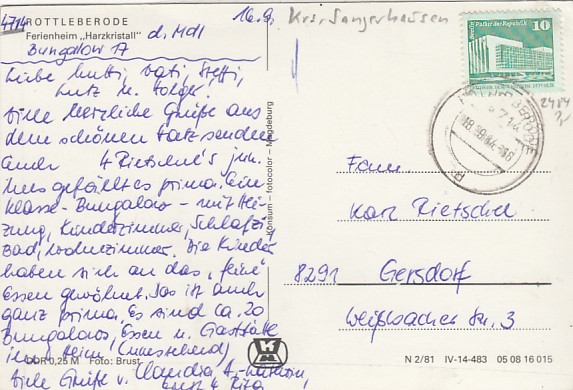 4714
ROTTLEBERODE
Ferienheim „Harzkristall" d. MdI
Bungalow 17
16.9.
Krs. Sangerhausen
Liebe Mutti, Vati, Steffi,
Lutz u. Holger!
Viele herzliche Grüße aus
dem schönen Harz senden
Euch 4 Rietschel's jun.
Uns gefällt es prima. Ein
Klasse-Bungalow – mit Hei-
zung, Kinderzimmer, Schlafzi
Bad, Wohnzimmer. Die Kinder
haben sich an das „feine"
Essen gewöhnt. Das ist auch
ganz prima. Es sind ca. 20
Bungalows, Essen u. Gaststätte
im Heim (umstehend)
Viele Grüße v. Claudia
u. Rita
DDR 0,25 M Foto: Brust
Konsum - fotocolor - Magdeburg
Berlin, Palast der Republik
10
DDR
4714
18.-9.84-16
2484
Fam.
Karl Rietschel
8291 Gersdorf
Weißbacher Str. 3
N 2/81 IV-14-483 05 08 16 015